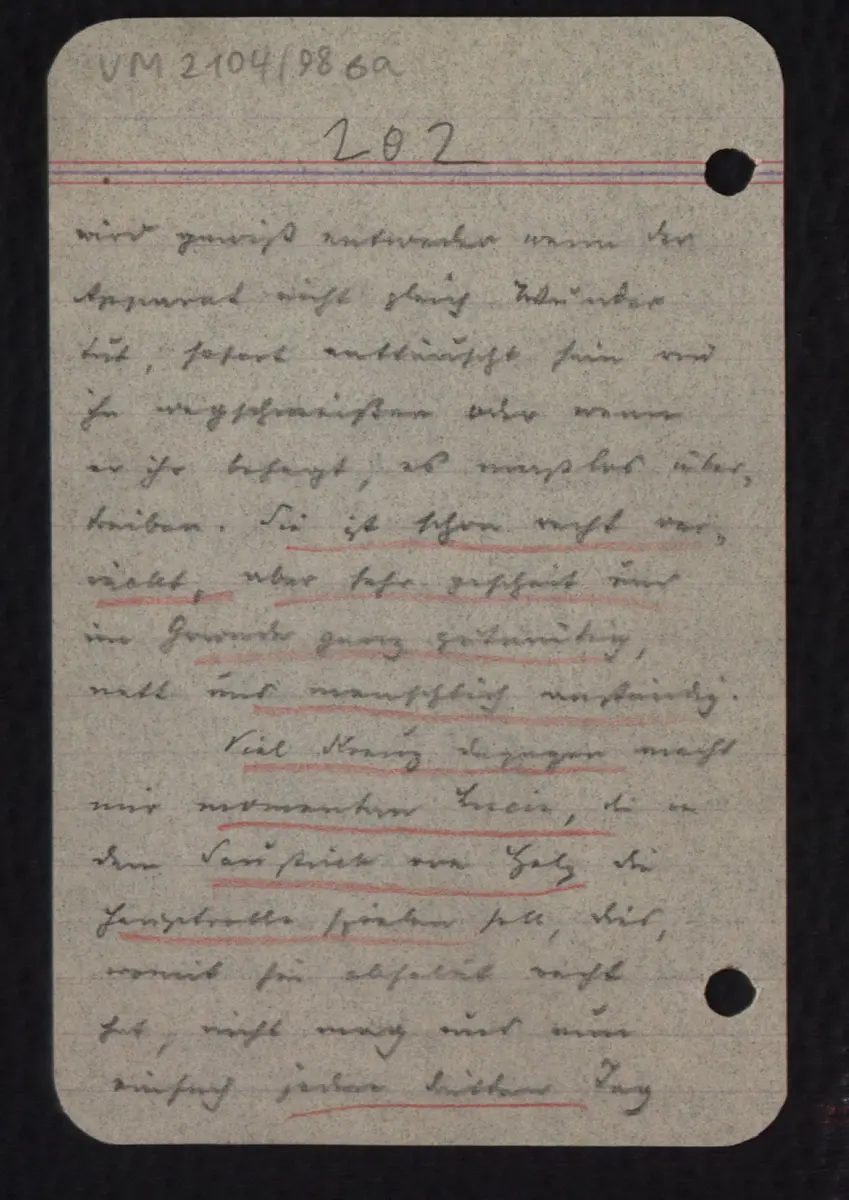 VM 2104/98 6a
202
wird gewiß entweder wenn der
Apparat nicht gleich Wunder
tut, sofort enttäuscht sein und
ihn wegschmeißen oder wenn
er ihr behagt, es maßlos über-
treiben. Sie ist schon recht ver-
rückt, aber sehr gescheit und
im Grunde ganz gutmütig,
nett und menschlich anständig.
Viel Kreuz dagegen macht
mir momentan Lucie, die in
dem Saustück von Holz die
Hauptrolle spielen soll, dies,
womit sie absolut recht
hat, nicht mag und nun
einfach jeden dritten Tag